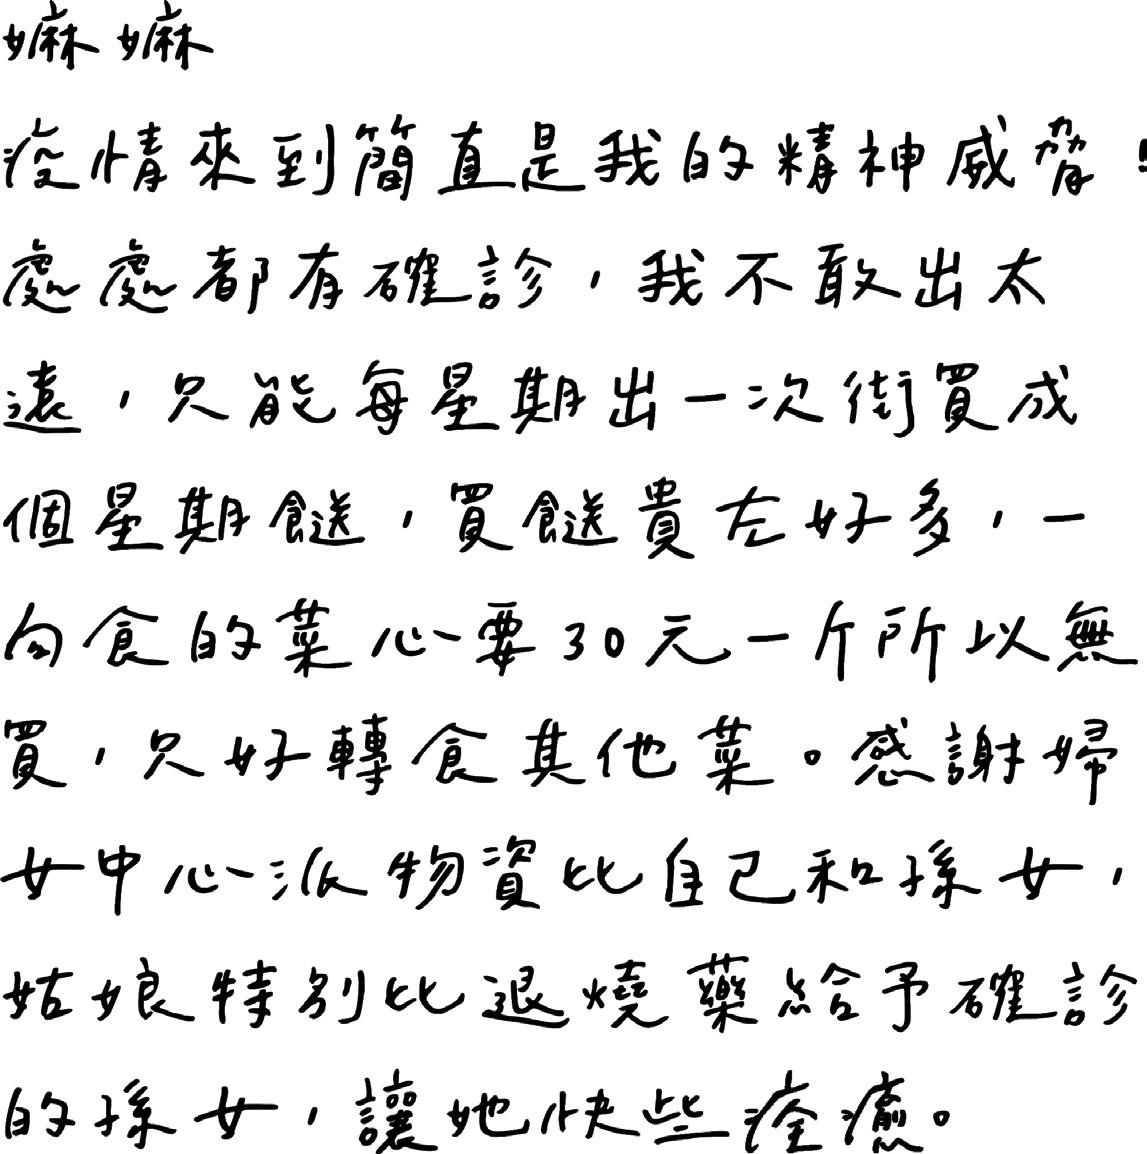 嫲嫲
疫情來到簡直是我的精神威脅！
處處都有確診，我不敢出太
遠，只能每星期出一次街買成
個星期餸，買餸貴左好多，一
向食的菜心要30元一斤所以無
買，只好轉食其他菜。感謝婦
女中心派物資比自己和孫女，
姑娘特別比退燒藥給予確診
的孫女，讓她快些痊癒。